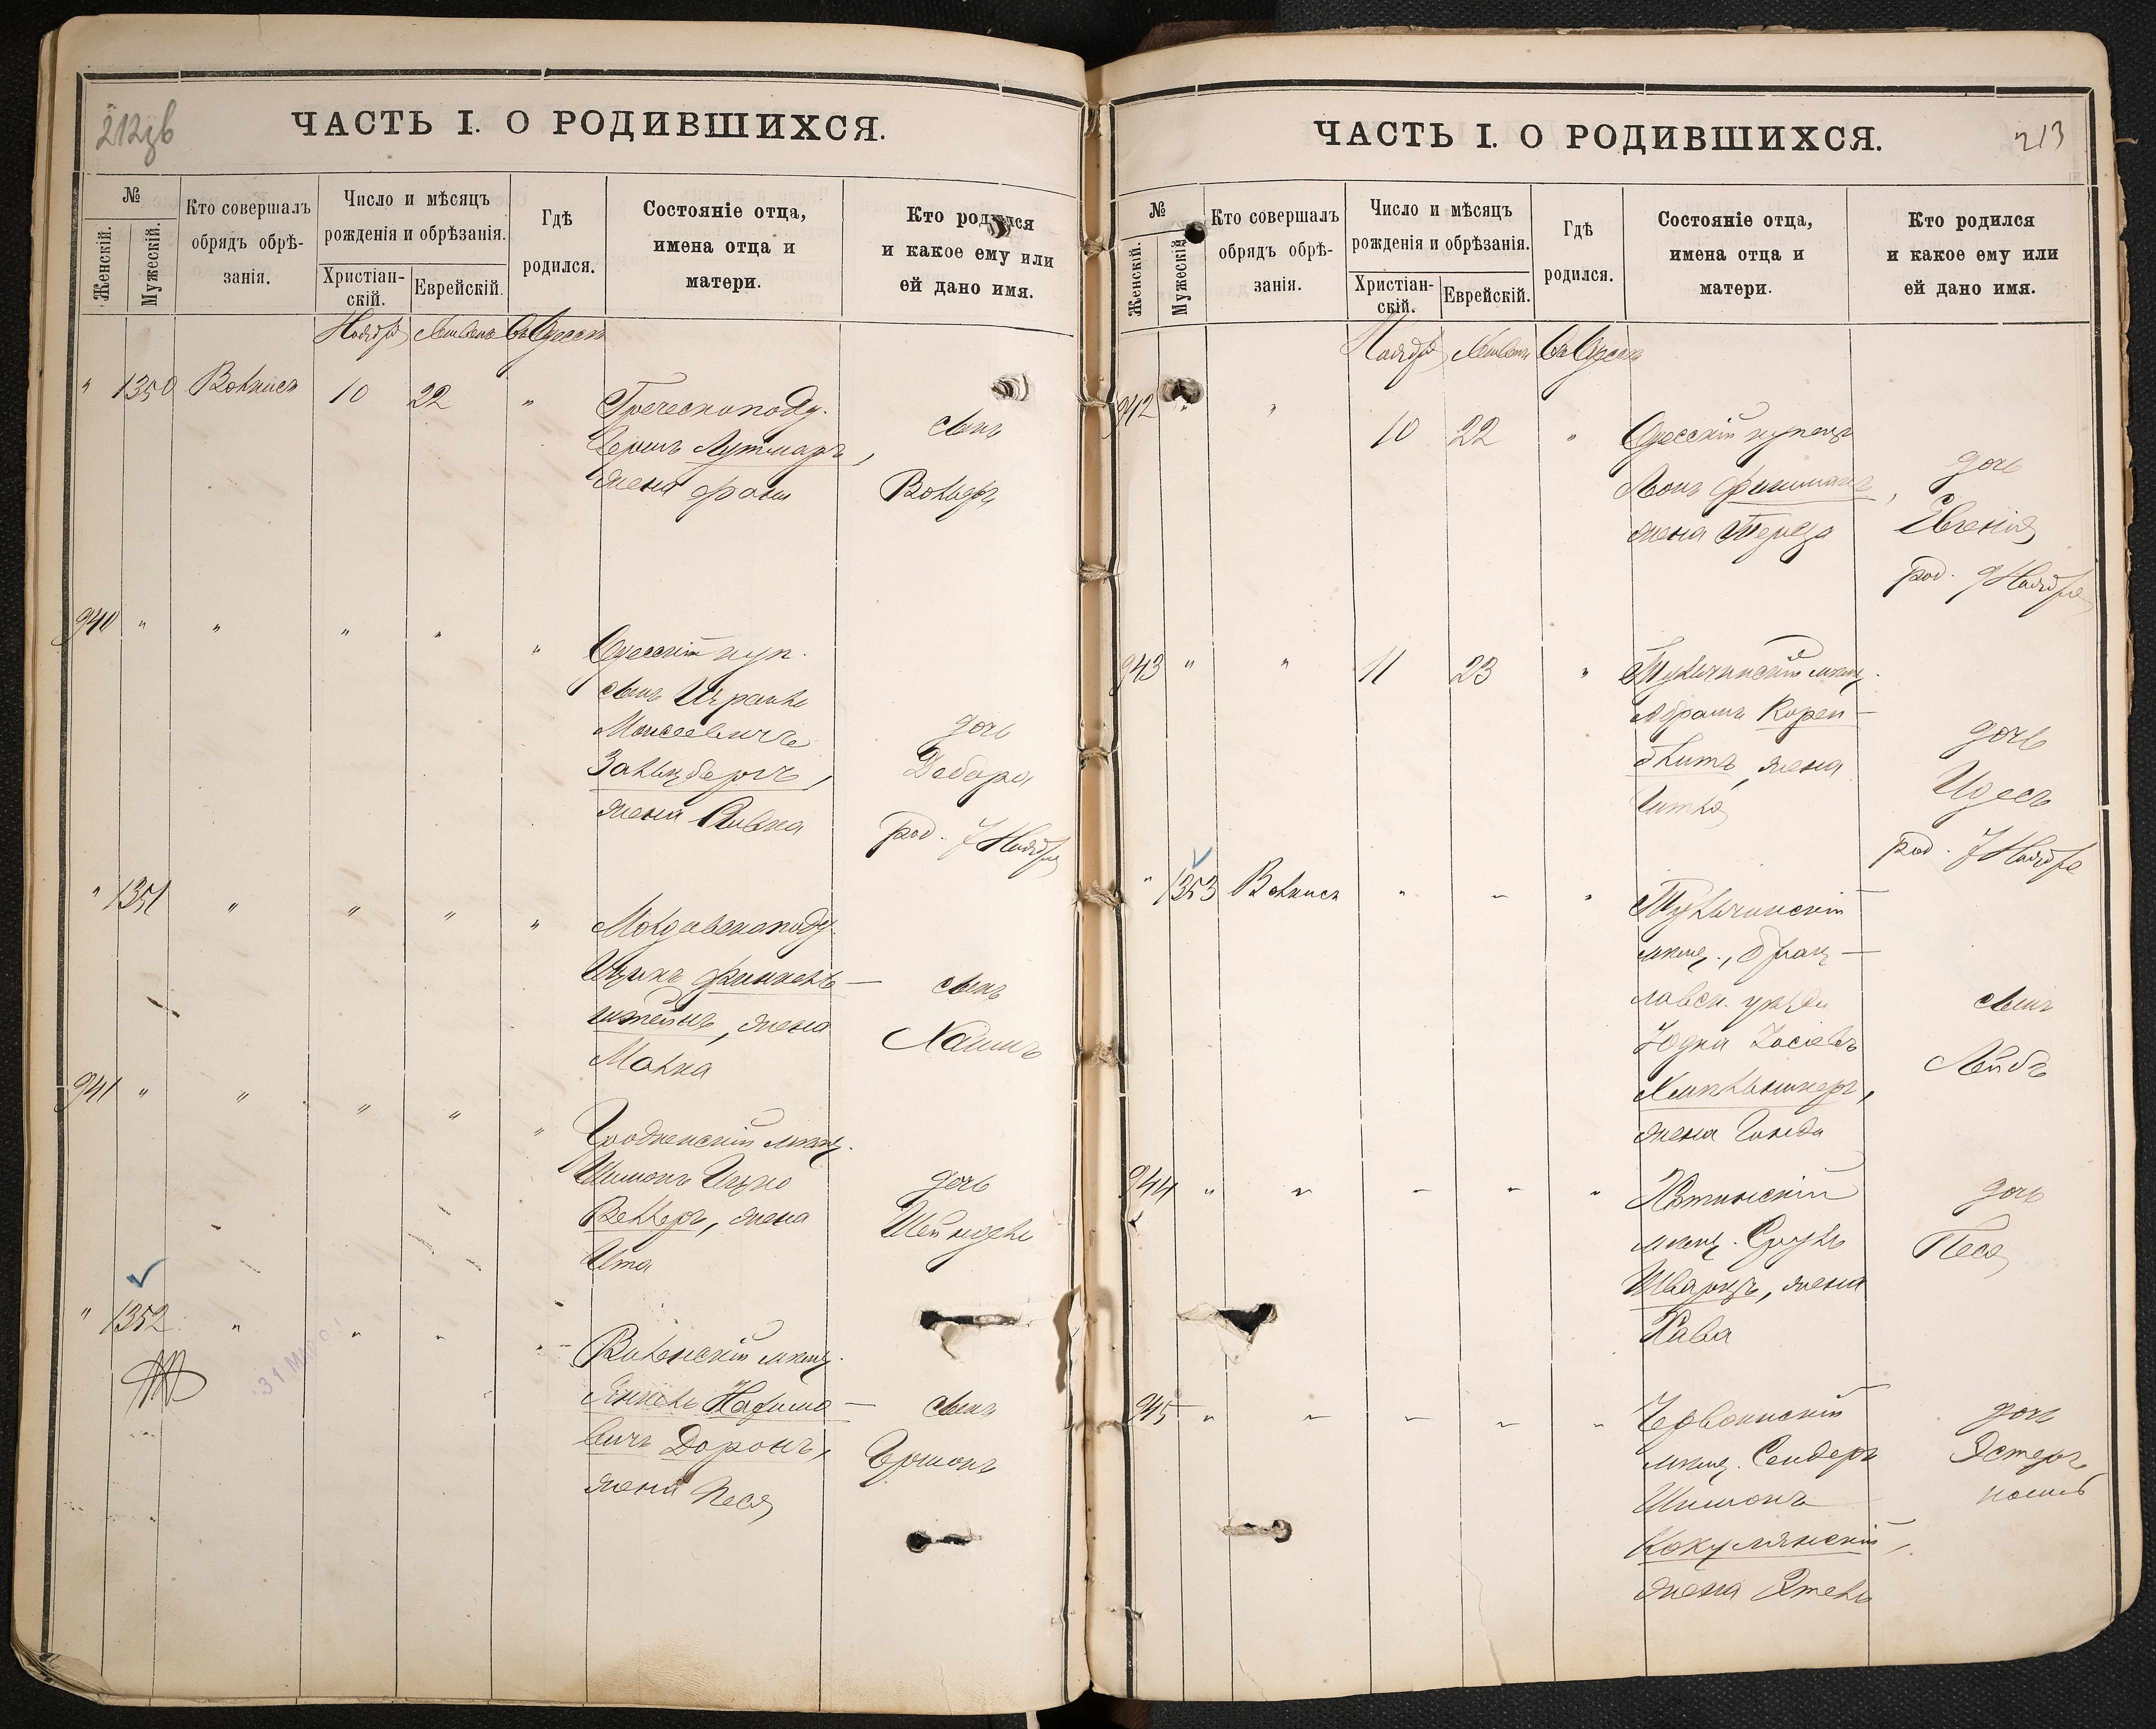 212зв
ЧАСТЬ I. О РОДИВШИХСЯ.
№
Женскій.
Мужескій.
Кто совершалъ
обрядъ обрѣ-
занія.
Число и мѣсяцъ
рожденія и обрѣзанія.
Христіан-
скій.
Еврейскій.
Гдѣ
родился.
Состояніе отца,
имена отца и
матери.
Кто родился
и какое ему или
ей дано имя.
Ноября въ Одессѣ
" 1350 10 22 "
Греческоподд.
жена
сынъ
940 " " " " "
Одесскій куп.
сынъ Израиль
Моисеевичъ
Зальцбергъ,
жена Ривка
дочь
Дебора
род. 7 Ноября
" 1351 " " " "
Молдавскоподд.
Ицикъ Финкель-
штейнъ, жена
Малка
сынъ
Хаимъ
941 " " " " "
Гродненскій мѣщ.
Шимонъ Ицко
Веллеръ, жена
Ита
дочь
Шейндель
" 1352 " " " "
Виленскій мѣщ.
Янкель
вичъ Доронъ,
жена Песя
сынъ
Гершонъ
31
213
ЧАСТЬ I. О РОДИВШИХСЯ.
№
Женскій.
Мужескій.
Кто совершалъ
обрядъ обрѣ-
занія.
Число и мѣсяцъ
рожденія и обрѣзанія.
Христіан-
скій.
Еврейскій.
Гдѣ
родился.
Состояніе отца,
имена отца и
матери.
Кто родился
и какое ему или
ей дано имя.
Ноября въ Одессѣ
942 " " 10 22 "
Одесскій купецъ
Леонъ Фишманъ,
жена Тереза
дочь
Евгенія
род. 9 Ноября
943 " " 11 23 "
Тульчинскій мѣщ.
Абрамъ Корен-
блитъ, жена
Гитля
дочь
Идесъ
род. 7 Ноября
" 1353 " " "
Тульчинскій
мѣщ., Брац-
лавск. уѣзда
Юдка
жена Гинда
сынъ
Лейбъ
944 " " " " "
мѣщ. Сруль
Шварцъ, жена
Хава
дочь
Песя
945 " " " " "
мѣщ. Сендеръ
Шимонъ
Кокулянскій,
жена Этель
дочь
Эстеръ